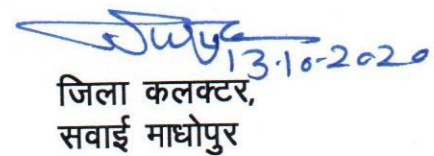 13-10-2020
जिला कलक्टर,
सवाई माधोपुर